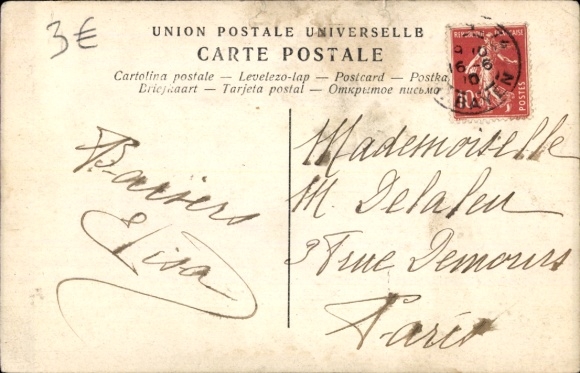 3€
UNION POSTALE UNIVERSELLE
CARTE POSTALE
Cartolina postale — Levelezo-lap — Postcard — Postka
Briefkaart — Tarjeta postal — Открытое письмо
REPUBLIQUE FRANÇAISE
10
POSTES
16-6
10
Baisers
Elisa
Mademoiselle
M. Delaleu
3 rue Demours
Paris